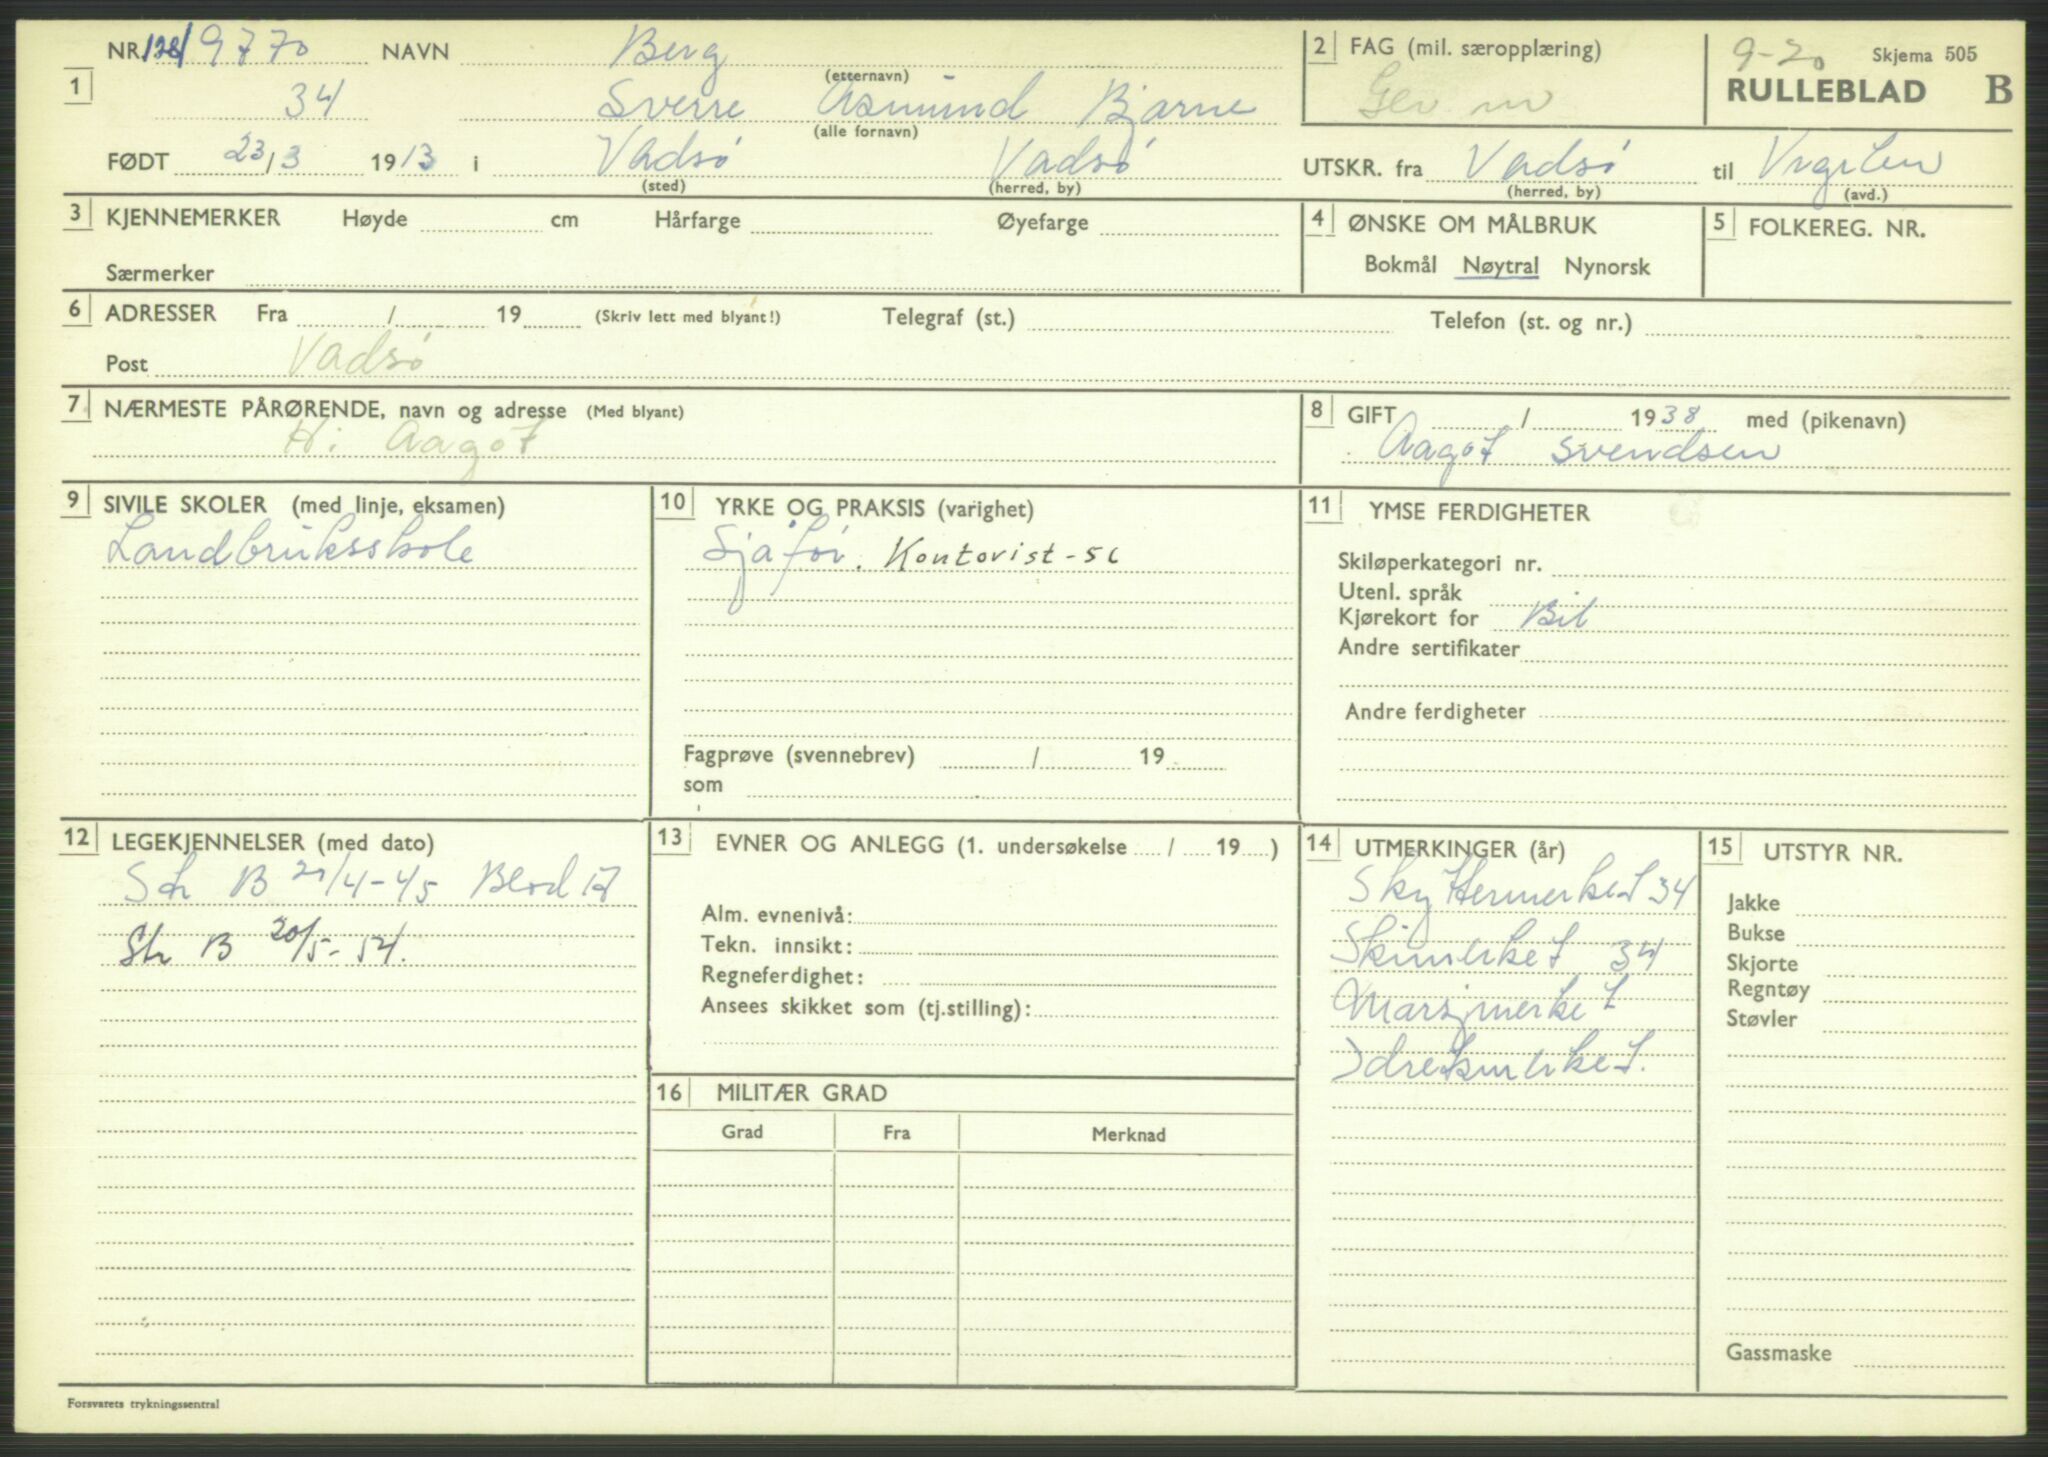 NR. 128/9770 NAVN Berg
(etternavn)
1 34 Sverre Asmund Bjarne
(alle fornavn)
FØDT 23/3 1913 i Vadsø Vadsø
(sted) (herred, by)
2 FAG (mil. særopplæring)
Gev m
9-20 Skjema 505
RULLEBLAD B
UTSKR. fra Vadsø til
(herred, by) (avd.)
3 KJENNEMERKER Høyde cm Hårfarge Øyefarge
Særmerker
4 ØNSKE OM MÅLBRUK
Bokmål Nøytral Nynorsk
5 FOLKEREG. NR.
6 ADRESSER Fra / 19 (Skriv lett med blyant!) Telegraf (st.) Telefon (st. og nr.)
Post Vadsø
7 NÆRMESTE PÅRØRENDE, navn og adresse (Med blyant)
H: Aagot
8 GIFT / 1938 med (pikenavn)
Aagot Svendsen
9 SIVILE SKOLER (med linje, eksamen)
Landbruksskole
10 YRKE OG PRAKSIS (varighet)
Sjåfør. Kontorist-56
Fagprøve (svennebrev) / 19
som
11 YMSE FERDIGHETER
Skiløperkategori nr.
Utenl. språk
Kjørekort for Bil
Andre sertifikater
Andre ferdigheter
12 LEGEKJENNELSER (med dato)
Str B 21/4-45 Blod A
Str B 20/5-54.
13 EVNER OG ANLEGG (1. undersøkelse / 19 )
Alm. evnenivå:
Tekn. innsikt:
Regneferdighet:
Ansees skikket som (tj.stilling):
14 UTMERKINGER (år)
Skyttermerket 34
Skimerket 34
Marsjmerket
Idretsmerket.
15 UTSTYR NR.
Jakke
Bukse
Skjorte
Regntøy
Støvler
Gassmaske
16 MILITÆR GRAD
Grad Fra Merknad
Forsvarets trykningssentral